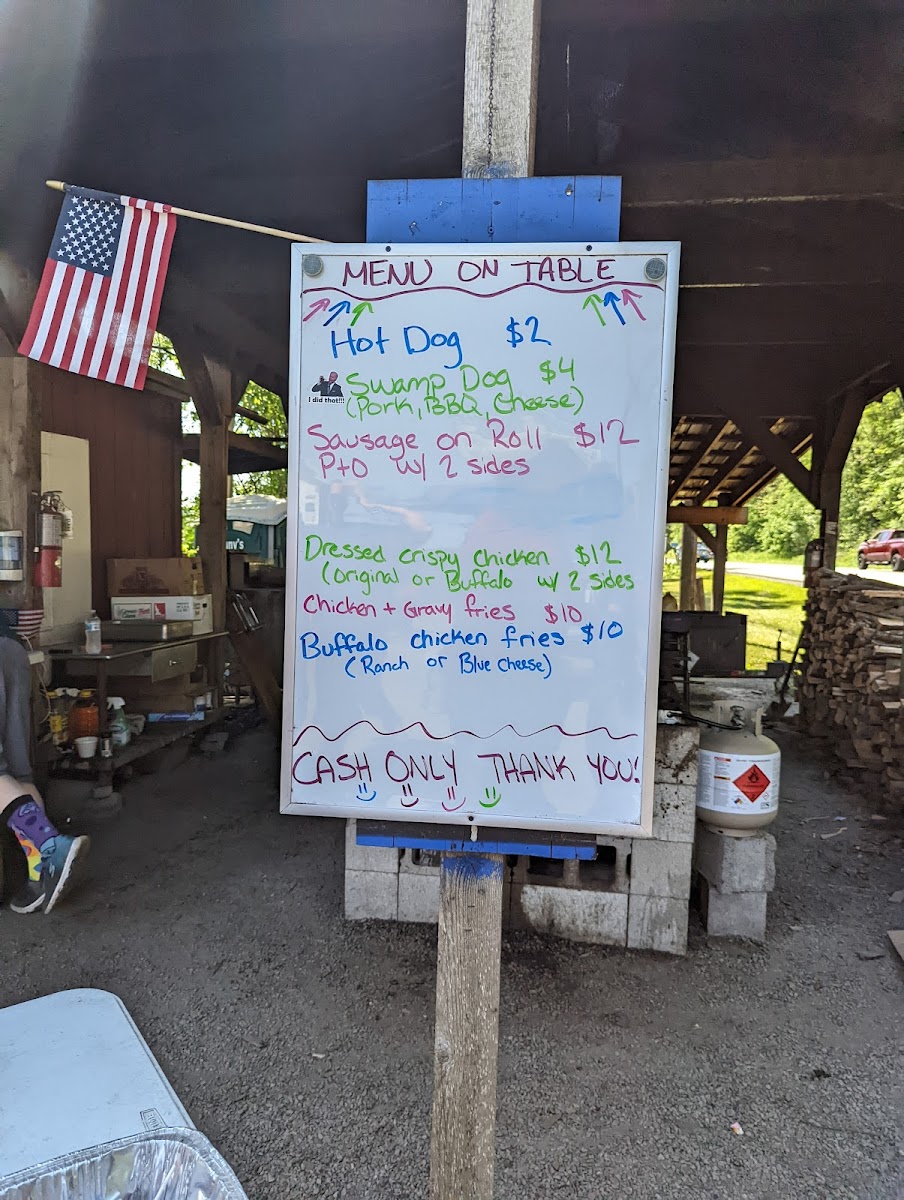 MENU ON TABLE
Hot Dog $2
I did that!!!
Swamp Dog $4
(Pork, BBQ, Cheese)
Sausage on Roll $12
P+O w/ 2 sides
Dressed crispy chicken $12
(original or Buffalo w/ 2 sides
Chicken + Gravy fries $10
Buffalo chicken fries $10
(Ranch or Blue Cheese)
CASH ONLY THANK YOU!